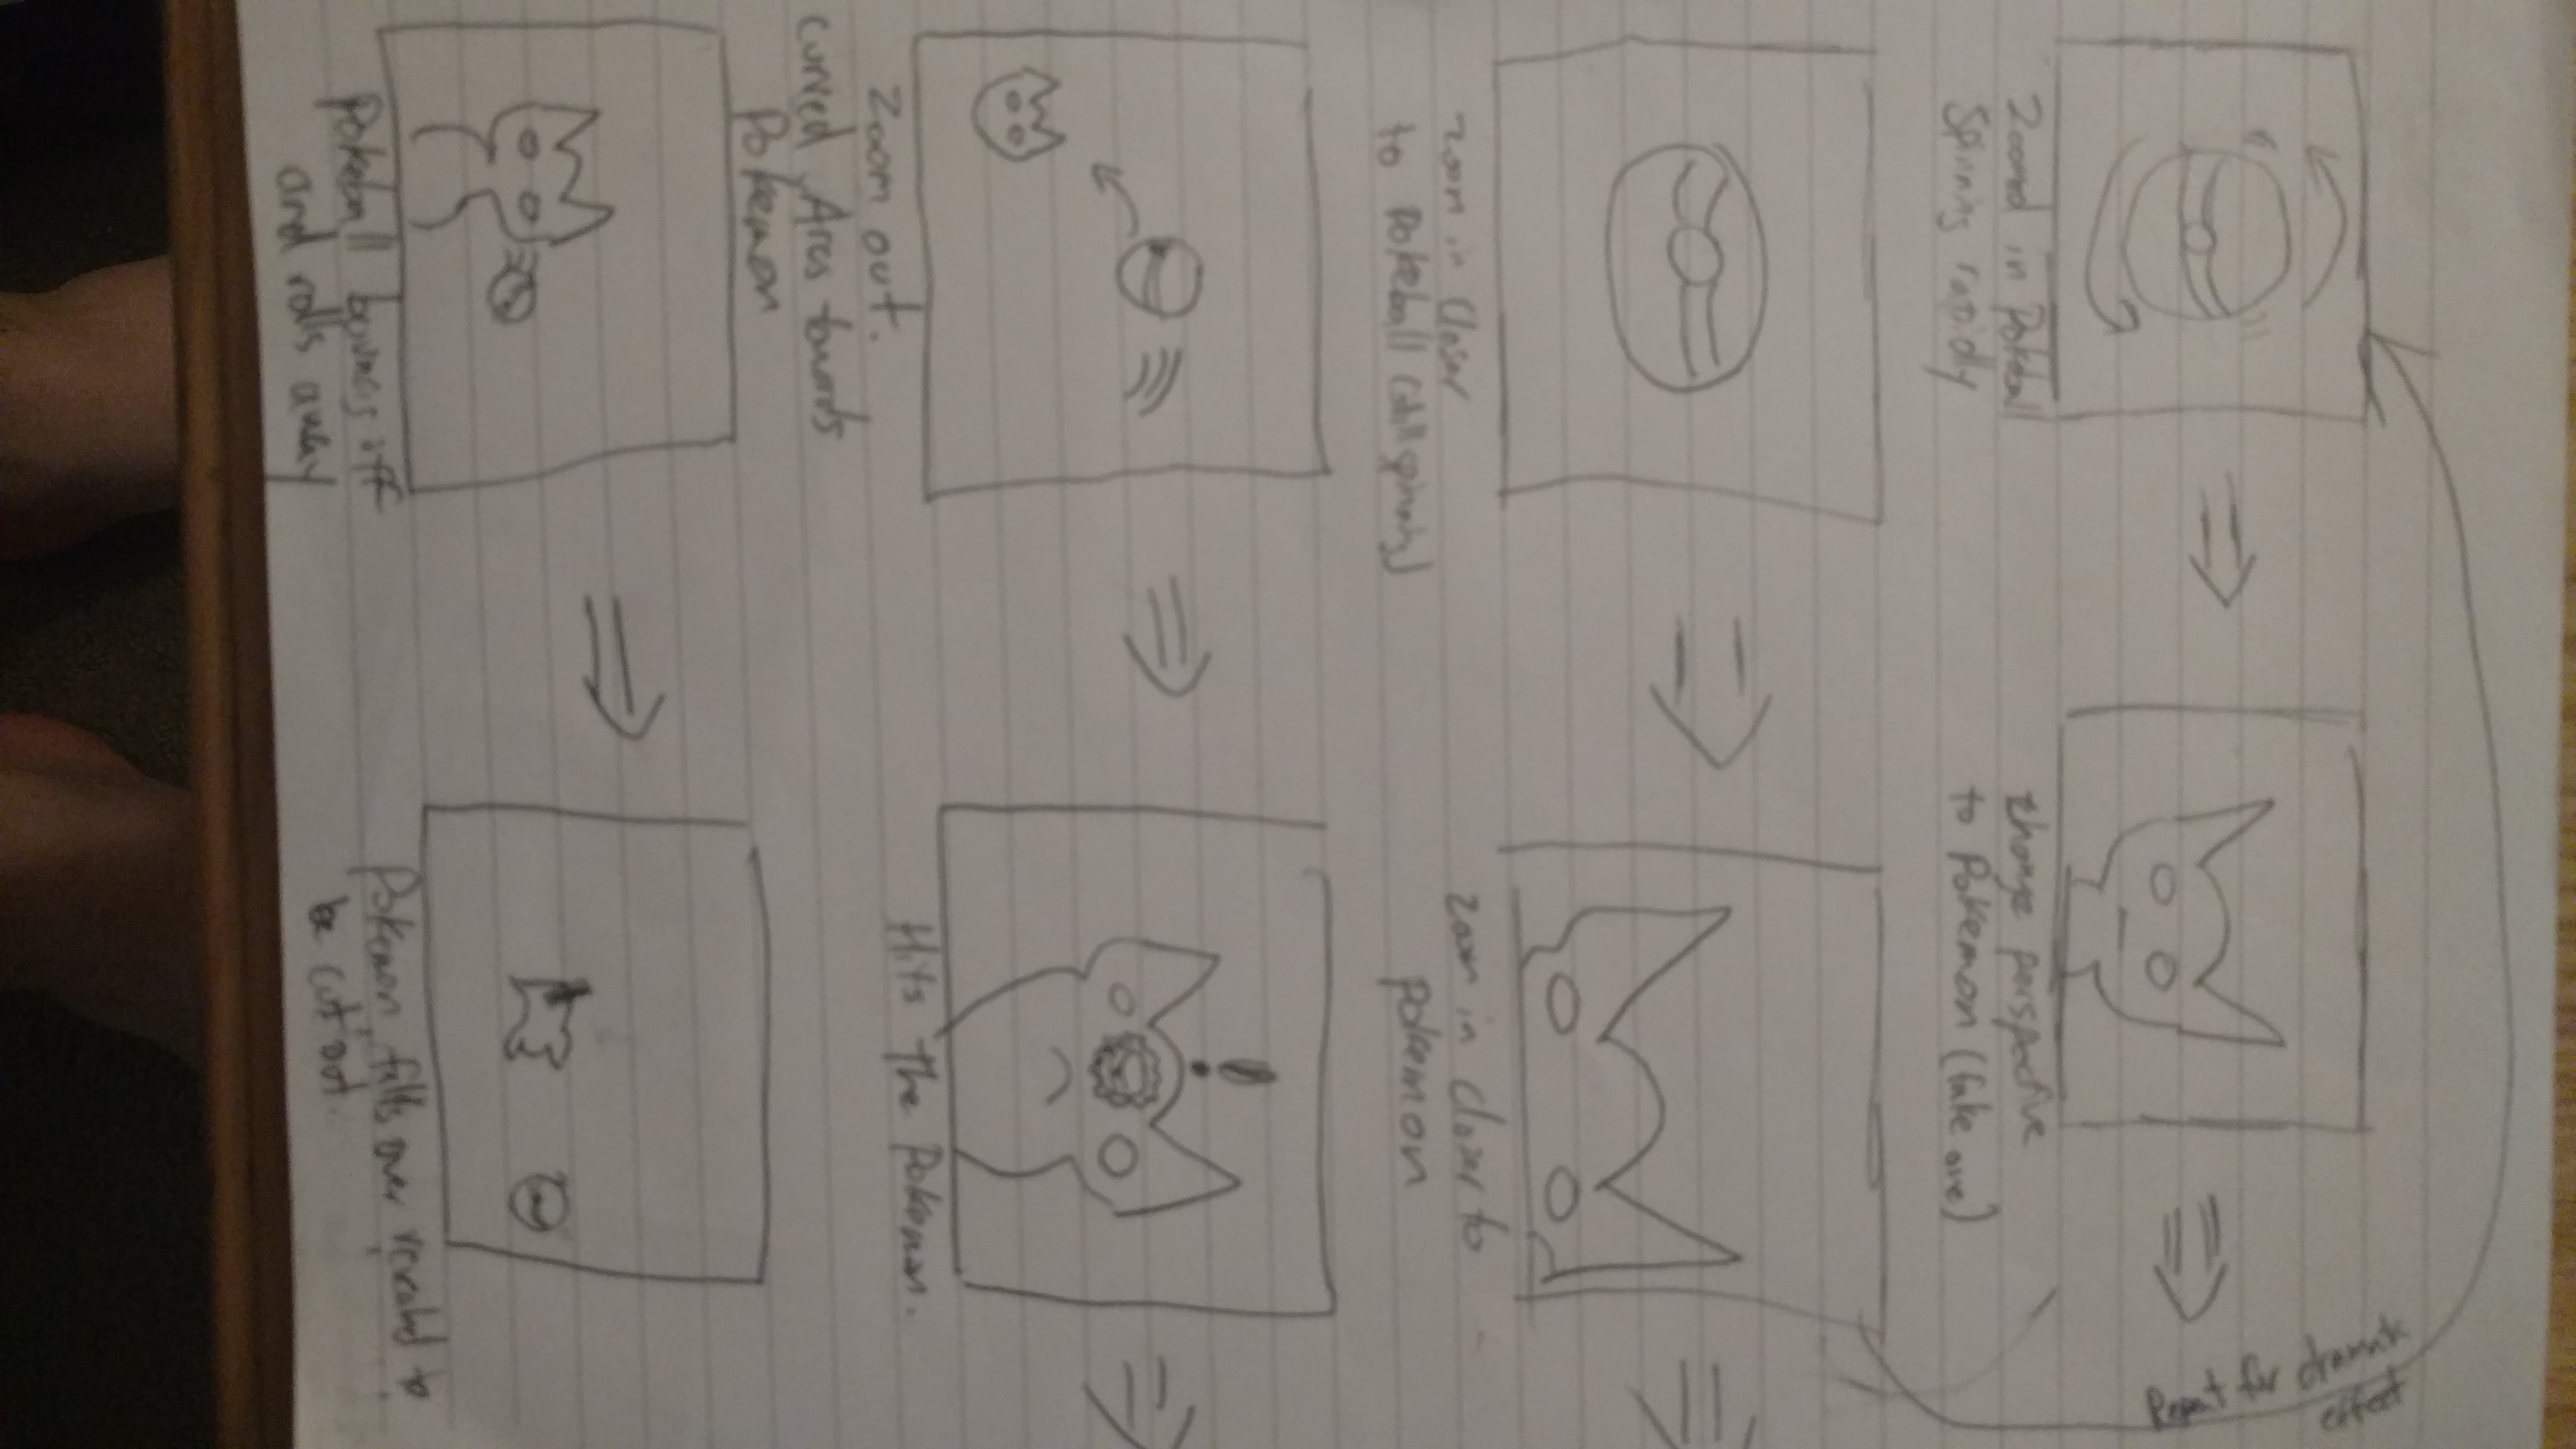 Zoomed in Pokeball
Spinning rapidly
change perspective
to Pokemon (fake one)
Repeat for dramatic
effect
zoom in Closer
to Pokeball (still spinning)
zoom in closer to
pokemon
Zoom out.
curved Arcs towards
Pokemon
!
Hits the Pokemon.
Pokeball bounces off
and rolls away
Pokemon falls over revealed to
be cut out.